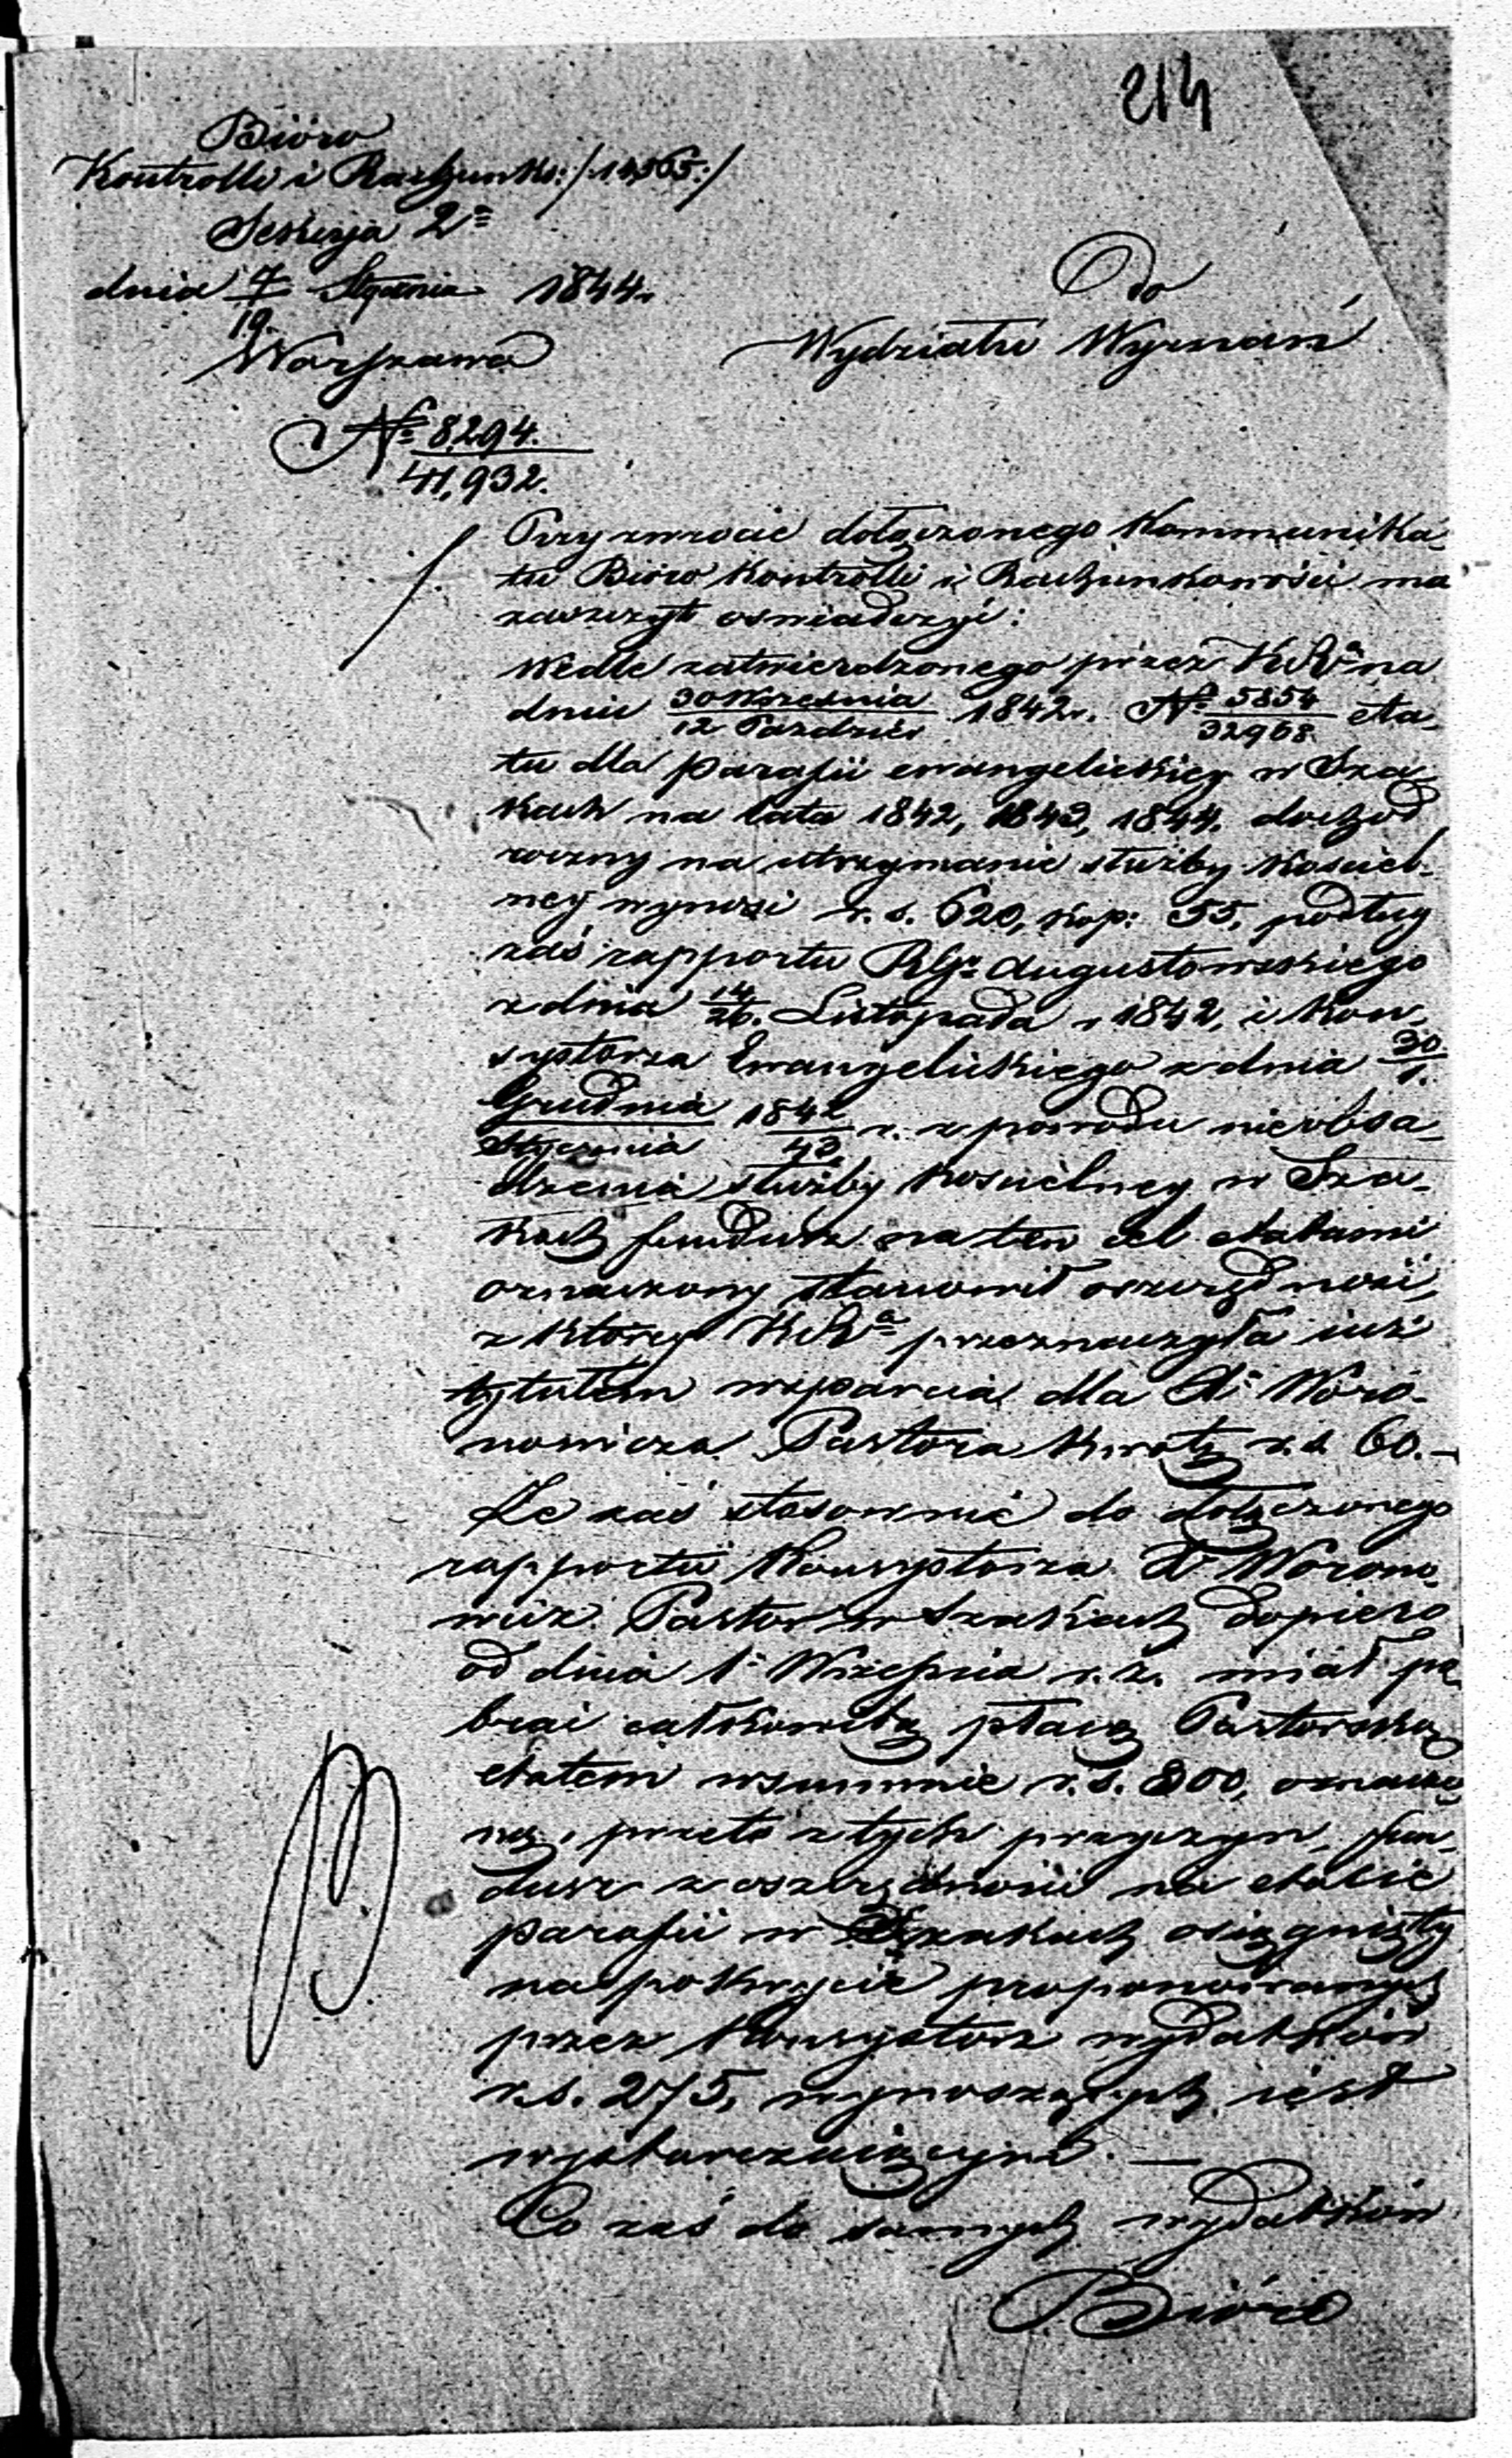 214
Bióro
Kontrolli i Rachunko: /:14,565:/
Sekcyja 2a
dnia 7/19 Stycznia 1844 r.
Warszawa
Do
Wydziału Wyznań
No 8294./41,932.
Przy zwrocie dołączonego Kommunika-
tu Bióro Kontrolli i Rachunkowości ma
zaszczyt oświadczyć:
Wedle zatwierdzonego przez KRSą na
dniu 30 Września/12 Paździer. 1842 r. No 5854/32968. eta-
tu dla parafii ewangelickiey w Sza-
kach na lata 1842, 1843, 1844. dochód
roczny na utrzymanie służby Kościel-
ney wynosi r. s. 620, kop: 55, podług
zaś rapportu RGo Augustowskiego
z dnia 14/26. Listopada r 1842, i Kon-
systorza Ewangelickiego z dnia 30./1.
Grudnia/Stycznia 1842/43 r. z powodu nieobsa-
dzenia służby Kościelney w Sza-
kach fundusz na ten cel etatami
oznaczony stanowił oszczędność,
z którey KRSa przeznaczyła iuż
tytułem wsparcia dla Xa Woro-
nowicza Pastora Kwotę r. s. 60.-
Że zaś stosownie do dołączonego
rapportu Konsystorza X Worono-
wicz Pastor w Szakach dopiero
od dnia 1o Września r. z. miał po-
brać całkowitą płacę Pastorską
etatem w summie r. s. 300, oznaczo-
ną, przeto z tych przyczyn, fun-
dusz z oszczędności na etacie
parafii w Szakach osiągnięty
na pokrycie proponowanych
przez Konsystorz wydatków
r. s. 275, wynoszących iest
wystarczaiącym. —
Co zaś do samych wydatków
Bióro